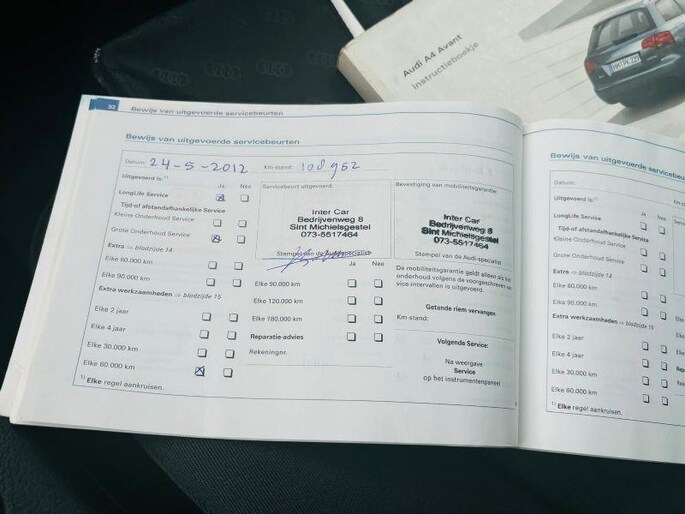 Audi A4 Avant
Instructieboekje
32 Bewijs van uitgevoerde servicebeurten
Bewijs van uitgevoerde servicebeurten
Datum: 24-5-2012 Km-stand: 108 952
Uitgevoerd is:¹⁾ Ja Nee
LongLife Service
Tijd-of afstandafhankelijke Service
Kleine Onderhoud Service
Grote Onderhoud Service
Extra ⇒ bladzijde 14
Elke 60.000 km
Elke 90.000 km
Extra werkzaamheden ⇒ bladzijde 15
Elke 2 jaar
Elke 4 jaar
Elke 30.000 km
Elke 60.000 km
¹⁾ Elke regel aankruisen.
Servicebeurt uitgevoerd:
Inter Car
Bedrijvenweg 8
Sint Michielsgestel
073-5517464
Stempel van de Audi-specialist
Ja Nee
Elke 90.000 km
Elke 120.000 km
Elke 180.000 km
Reparatie-advies
Rekeningnr.
Bevestiging van mobiliteitsgarantie:
Inter Car
Bedrijvenweg 8
Sint Michielsgestel
073-5517464
Stempel van de Audi-specialist
De mobiliteitsgarantie geldt alleen als het
onderhoud volgens de voorgeschreven ser-
vice intervallen is uitgevoerd.
Getande riem vervangen
Km-stand:
Volgende Service:
Na weergave
Service
op het instrumentenpaneel
Bewijs van uitgevoerde servicebeu
Datum:
Uitgevoerd is:¹⁾ Ja Nee
LongLife Service
Tijd-of afstandafhankelijke Service
Kleine Onderhoud Service
Grote Onderhoud Service
Extra ⇒ bladzijde 14
Elke 60.000 km
Elke 90.000 km
Extra werkzaamheden ⇒ bladzijde 15
Elke 2 jaar
Elke 4 jaar
Elke 30.000 km
Elke 60.000 km
¹⁾ Elke regel aankruisen.